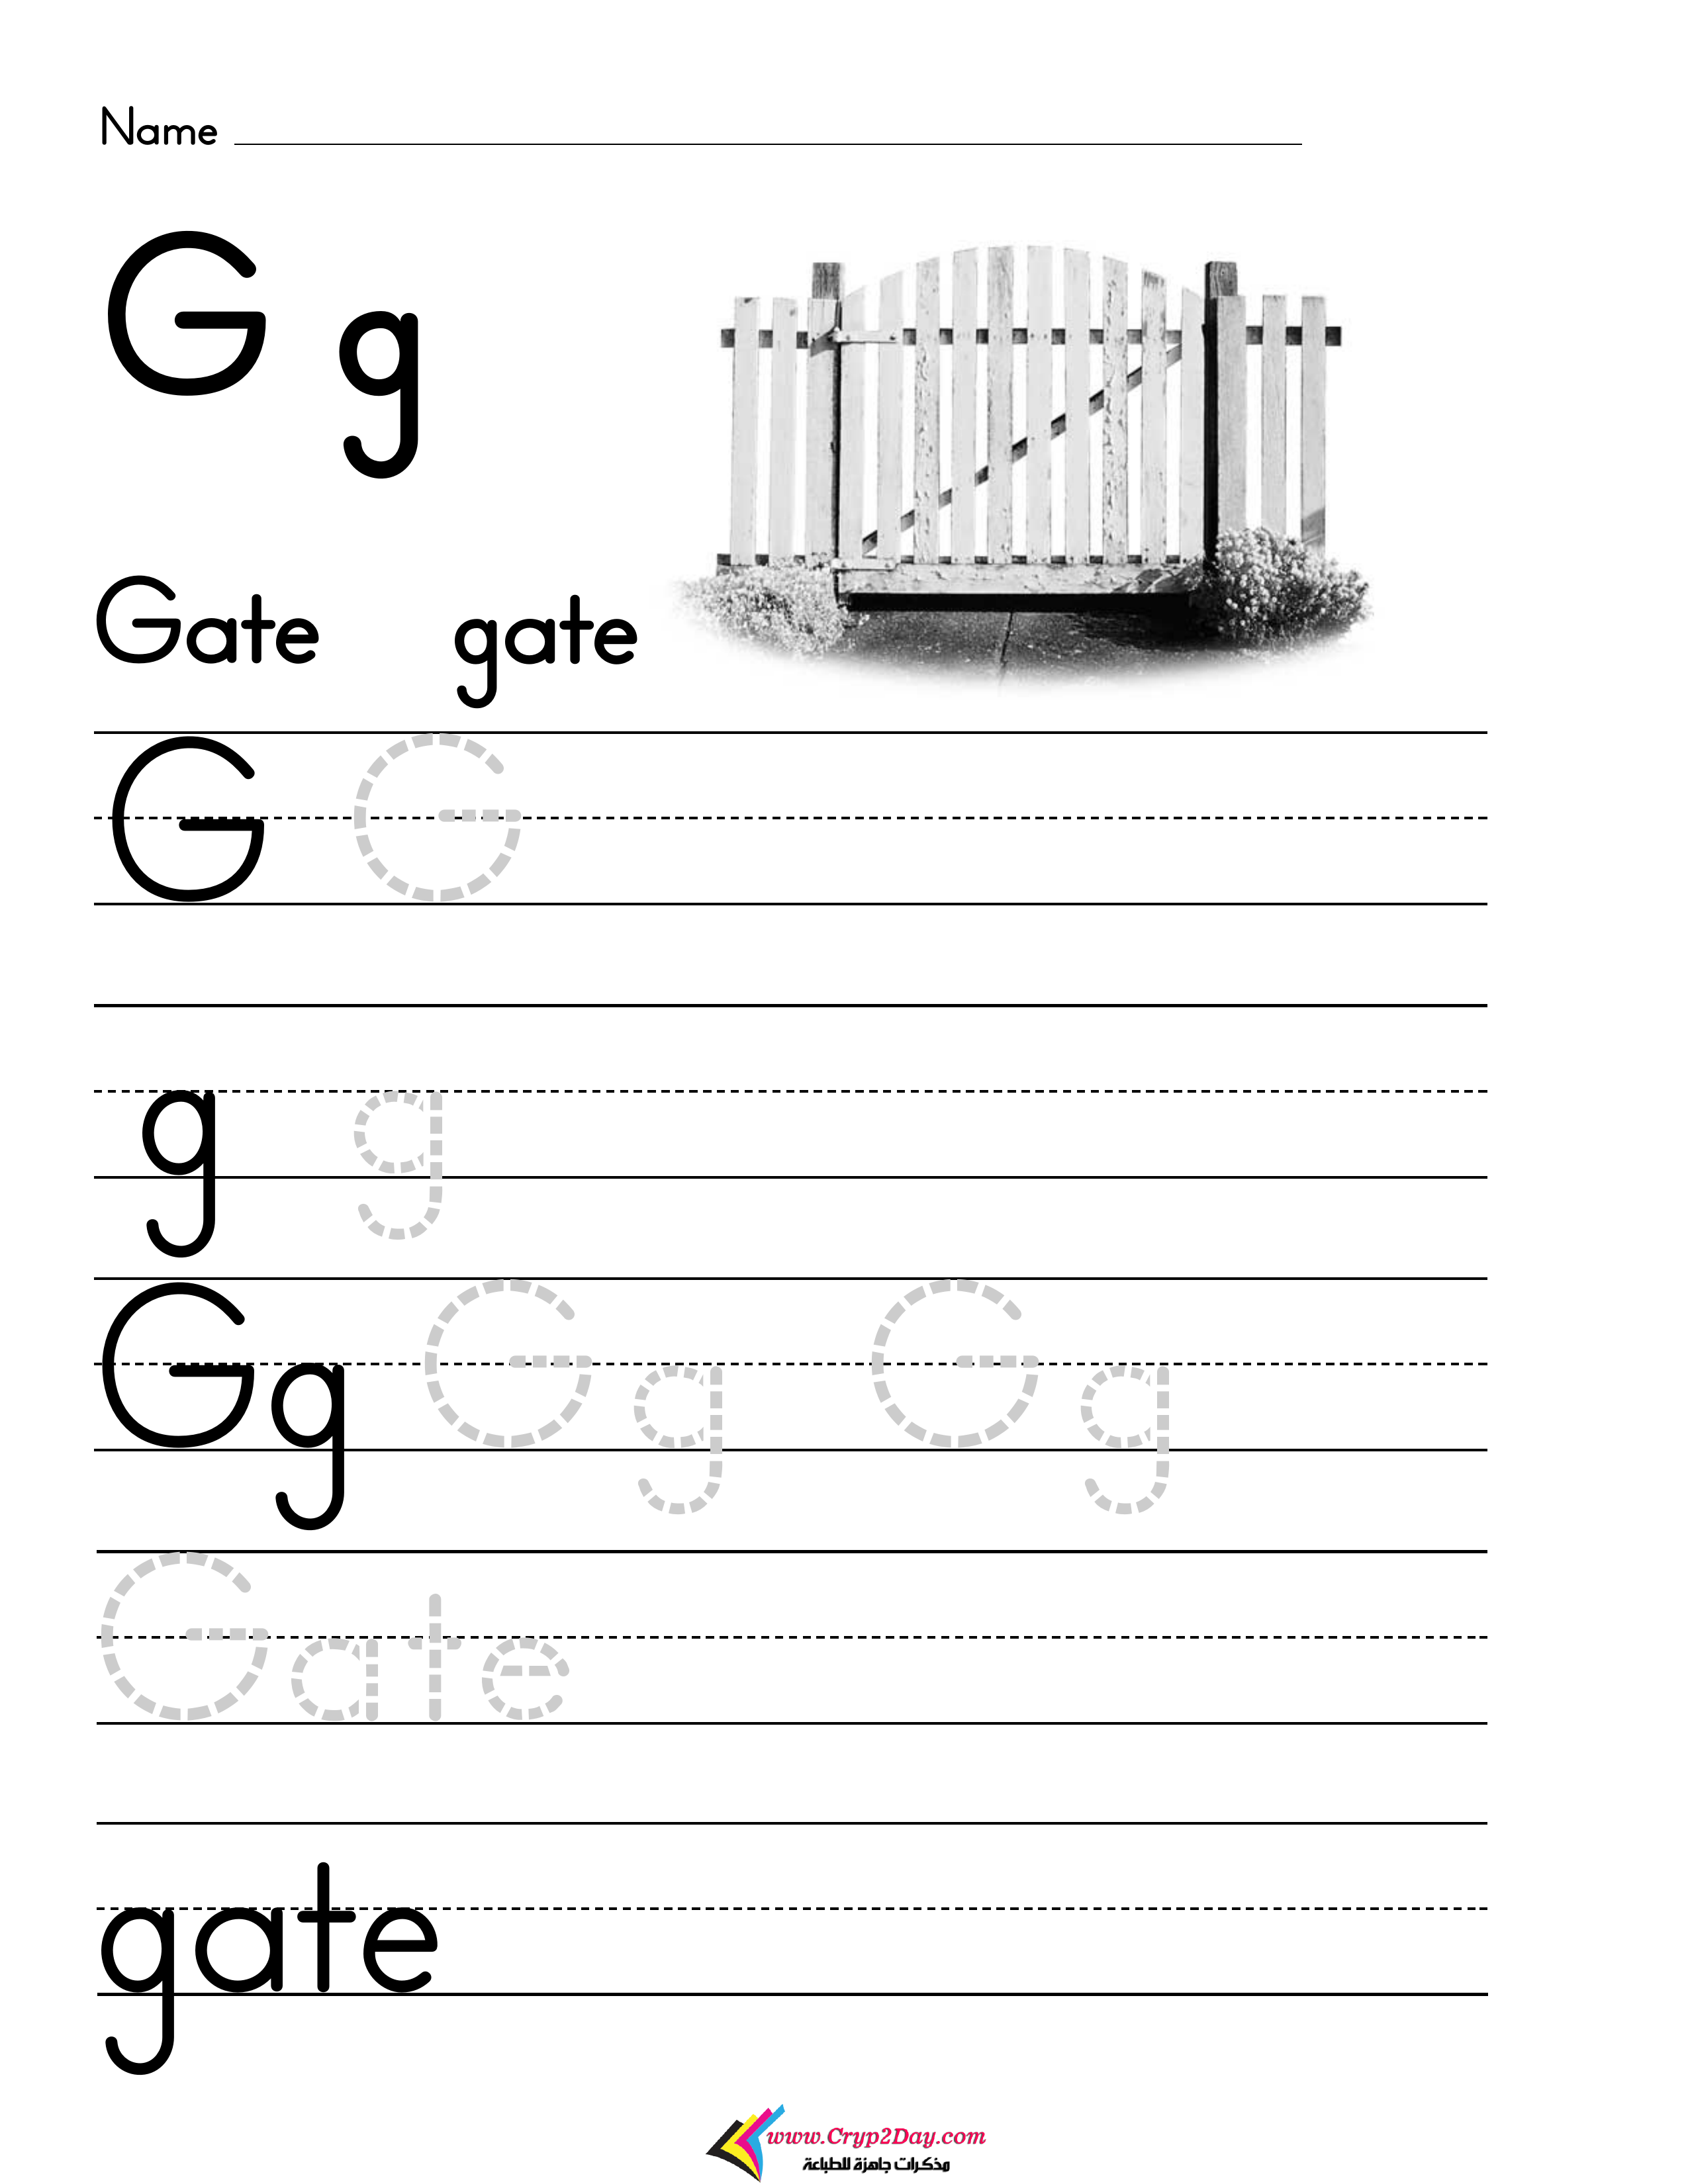 Name
G g
Gate gate
G G
g g
Gg Gg Gg
Gate
gate
www.Cryp2Day.com
مذكرات جاهزة للطباعة